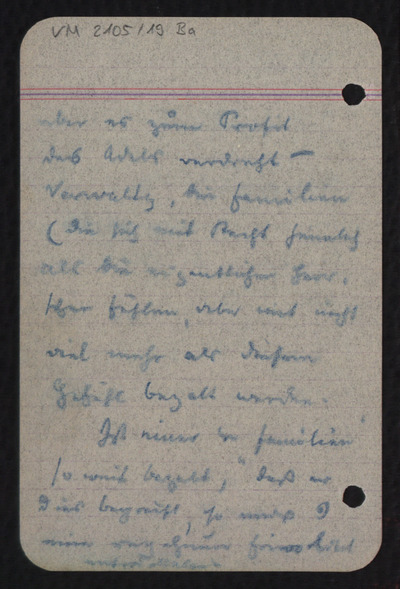 VM 2105/19 Ba
aber es zum Profit
des Adels verdreht –
Verwaltg, die Familien
(die sich mit Recht
als die eigentlichen Herr-
scher fühlen, aber mit nicht
viel mehr als diesem
Gefühl bezalt werden.
Ist einer der Familien
so weit bezalt, daß er
Dies begreift, so muß
eine